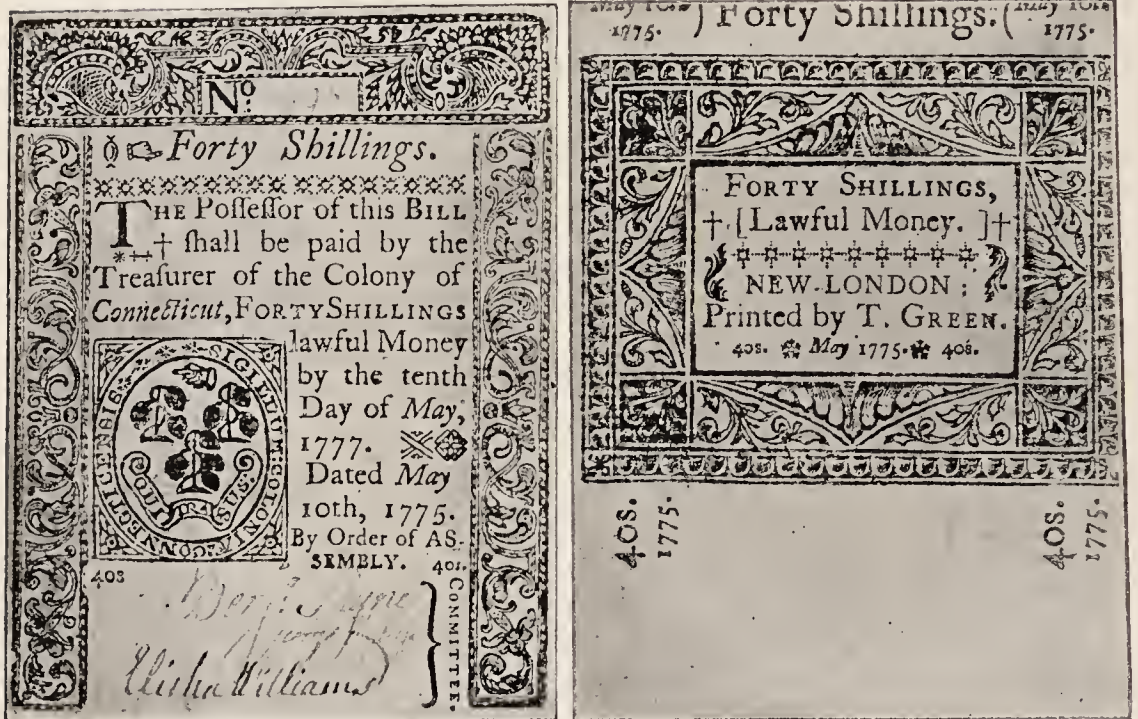 No.
Forty Shillings.
THE Poſſeſſor of this BILL
ſhall be paid by the
Treaſurer of the Colony of
Connecticut, FORTY SHILLINGS
lawful Money
by the tenth
Day of May,
1777.
Dated May
10th, 1775.
By Order of AS-
SEMBLY.
40s 40s.
SIGILLUM COLONIÆ CONNECTICENSIS
QUI TRA SUS.
COMMITTEE.
Elisha Williams
1775. ) Forty Shillings. ( 1775.
FORTY SHILLINGS,
† [ Lawful Money. ] †
NEW-LONDON :
Printed by T. GREEN.
40s. May 1775. 40s.
40s.
1775.
40s.
1775.